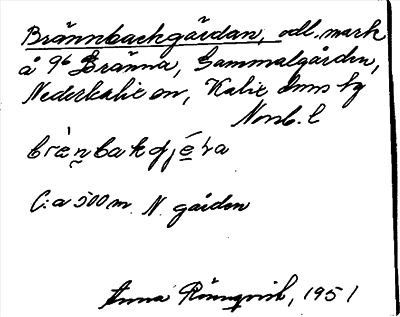 Brännbackgårdan, odl. mark
å 9⁶ Bränna, Gammalgården,
Nederkalix sn, Kalix kg
Norrb. l
C:a 500 m N gården
Anna Rönnqvist, 1951